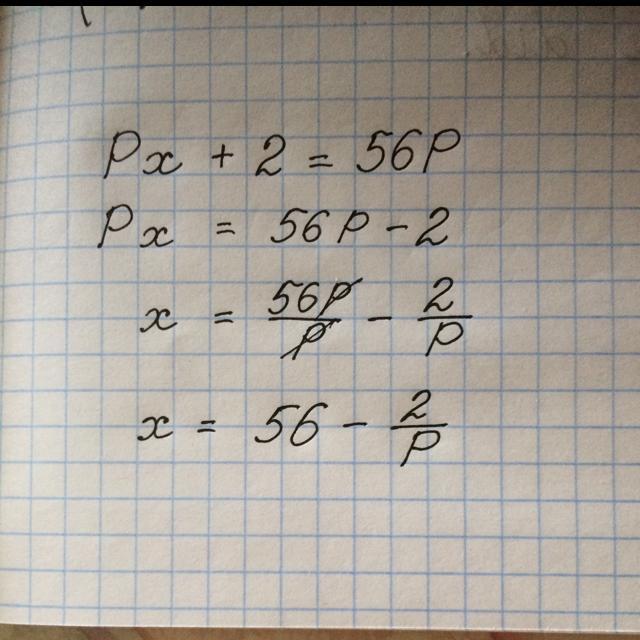 Px + 2 = 56P
Px = 56P - 2
x = 56P/P - 2/P
x = 56 - 2/P